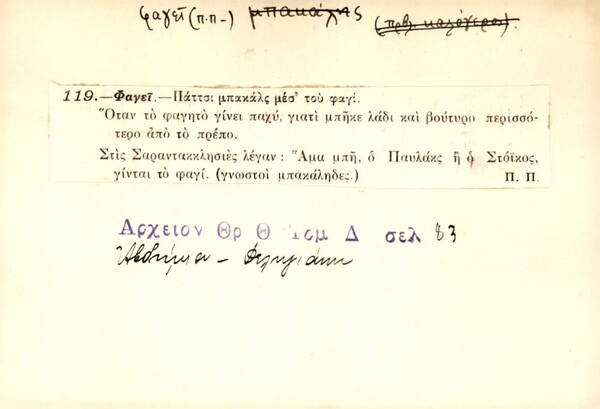 φαγεῖ (π.π-) μπακάλης (πρβλ. καλόγερος).
119.—Φαγεῖ.—Πάττσι μπακάλς μέσ' τοῦ φαγί.
Ὅταν τὸ φαγητὸ γίνει παχύ, γιατὶ μπῆκε λάδι καὶ βούτυρο περισσό-
τερο ἀπὸ τὸ πρέπο.
Στὶς Σαραντακκλησιὲς λέγαν : Ἅμα μπῆ, ὁ Παυλάκς ἢ ὁ Στόϊκος,
γίνται τὸ φαγί. (γνωστοὶ μπακάληδες.) Π. Π.
Αρχειον Θρ Θ Τομ Δ σελ 83